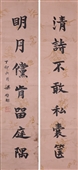 清詩不敢私囊篋
明月儻肯留庭隅